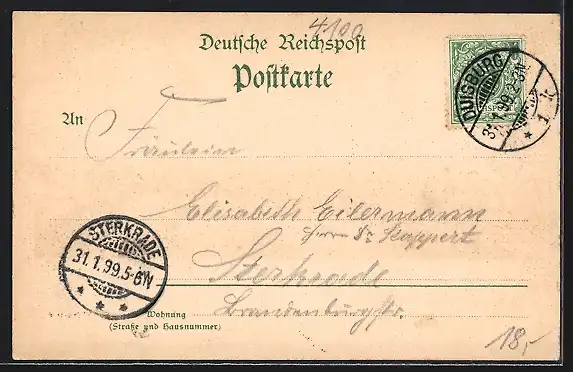 4100
Deutsche Reichspost
Postkarte
DUISBURG
31.1.99.2-3N
* 1 k
An
Fräulein
Elisabeth Eilermann
Herrn Dr. Kappert
Sterkrade
Brandenburgstr.
STERKRADE
31.1.99.5-6N
* * *
Wohnung
(Straße und Hausnummer)
18,-